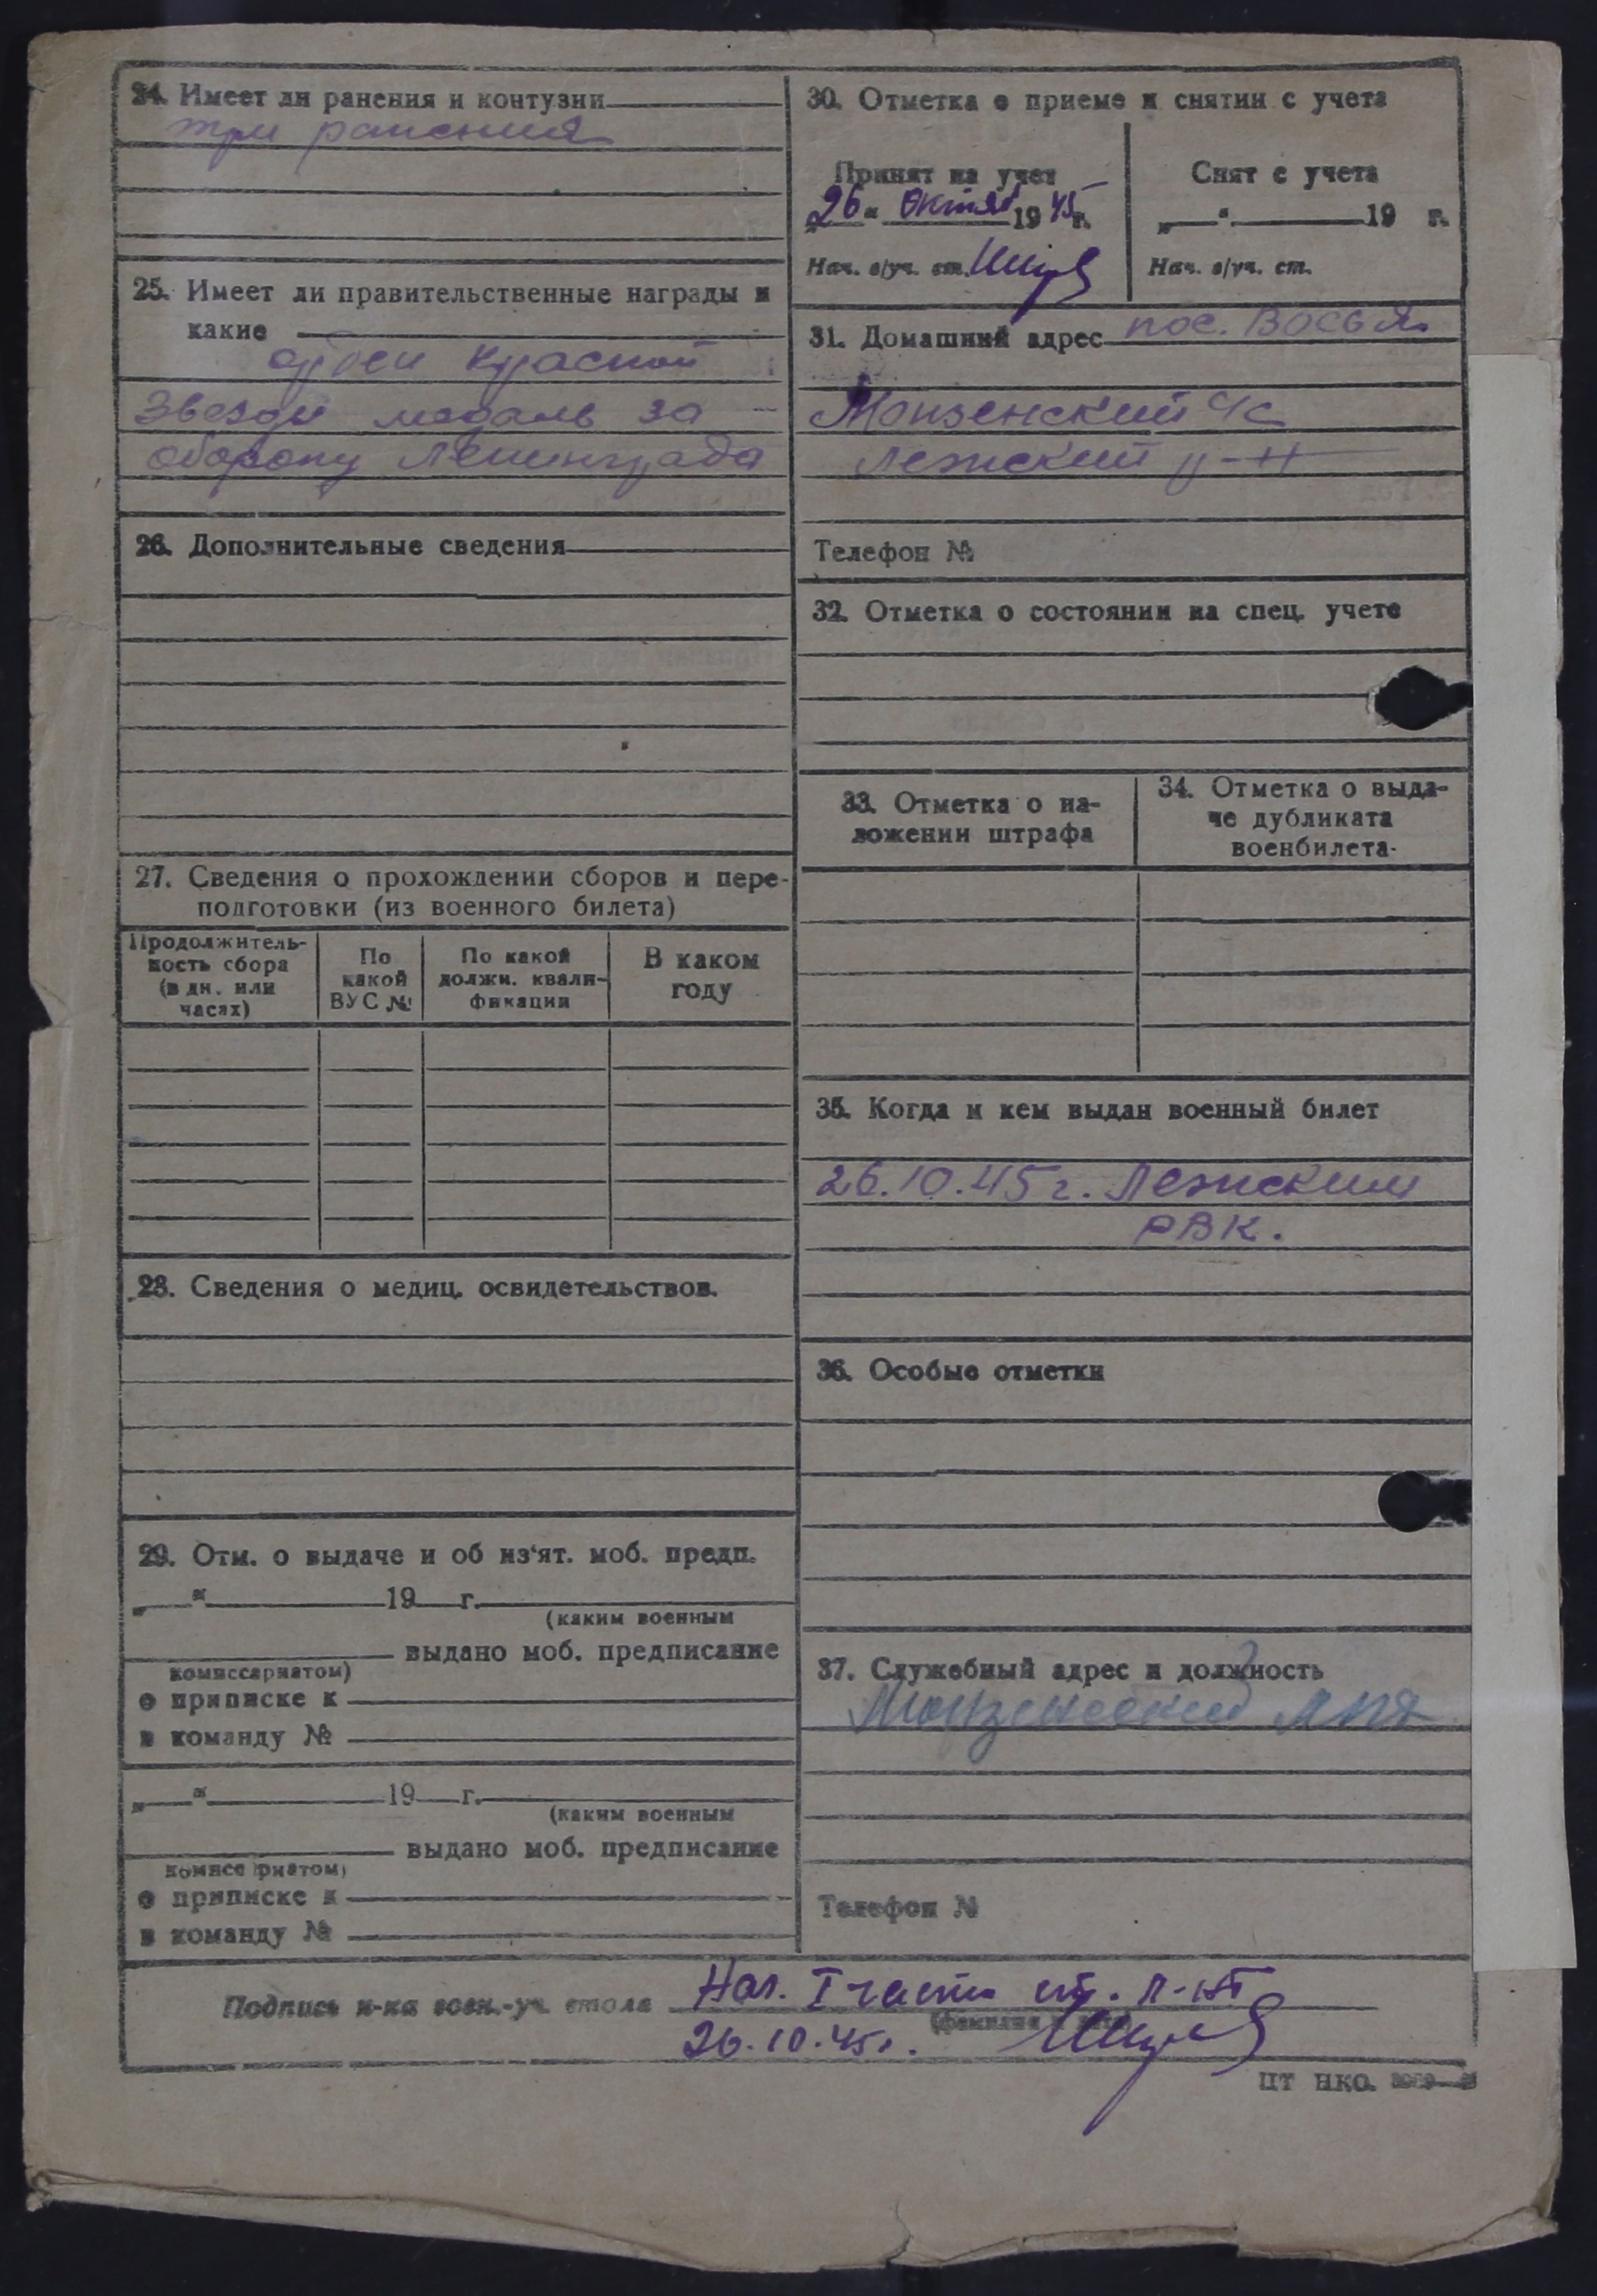 24. Имеет ли ранения и контузии
три ранения
25. Имеет ли правительственные награды и
какие
орден Красной
Звезды медаль за
оборону Ленинграда
26. Дополнительные сведения
27. Сведения о прохождении сборов и пере-
подготовки (из военного билета)
Продолжитель-
ность сбора
(в дн. или
часах)
По
какой
ВУС №
По какой
должн. квали-
фикации
В каком
году
28. Сведения о медиц. освидетельствов.
29. Отм. о выдаче и об из'ят. моб. предп.
„ “ 19 г.
(каким военным
выдано моб. предписание
комиссариатом)
о приписке к
в команду №
„ “ 19 г.
(каким военным
выдано моб. предписание
комиссариатом)
о приписке к
в команду №
30. Отметка о приеме и снятии с учета
Принят на учет
„26“ Октяб 1945 г.
Нач. в/уч. ст.
Снят с учета
„ “ 19 г.
Нач. в/уч. ст.
31. Домашний адрес пос. Восья
Монзенский
Лежский р-н
Телефон №
32. Отметка о состоянии на спец. учете
33. Отметка о на-
ложении штрафа
34. Отметка о выда-
че дубликата
военбилета
35. Когда и кем выдан военный билет
26.10.45 г. Лежским
РВК.
36. Особые отметки
37. Служебный адрес и должность
Монзенский ЛПХ
Телефон №
Подпись н-ка воен.-уч. стола Нач. I части ст. л-нт
26.10.45 г.
ЦТ НКО.